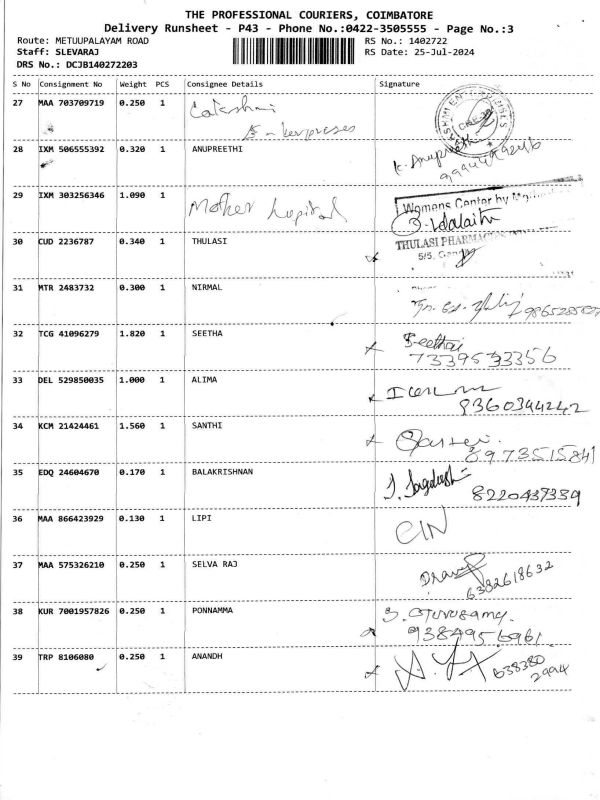 THE PROFESSIONAL COURIERS, COIMBATORE
Delivery Runsheet - P43 - Phone No.:0422-3505555 - Page No.:3
Route: METUUPALAYAM ROAD RS No.: 1402722
Staff: SLEVARAJ RS Date: 25-Jul-2024
DRS No.: DCJB140272203
S No Consignment No Weight PCS Consignee Details Signature
27 MAA 703709719 0.250 1 Lakshmi
28 IXM 506555392 0.320 1 ANUPREETHI K. Anupreethi
29 IXM 303256346 1.090 1 Mother hospital Womens Center by
30 CUD 2236787 0.340 1 THULASI THULASI PHARMAC
5/5.
31 MTR 2483732 0.300 1 NIRMAL
32 TCG 41096279 1.820 1 SEETHA Seethai
7339533356
33 DEL 529850035 1.000 1 ALIMA
9360344242
34 KCM 21424461 1.560 1 SANTHI
8973515841
35 EDQ 24604670 0.170 1 BALAKRISHNAN
8220437339
36 MAA 866423929 0.130 1 LIPI
37 MAA 575326210 0.250 1 SELVA RAJ
6382618632
38 KUR 7001957826 0.250 1 PONNAMMA S. Gurusamy
9384956961
39 TRP 8106080 0.250 1 ANANDH 638380
2994